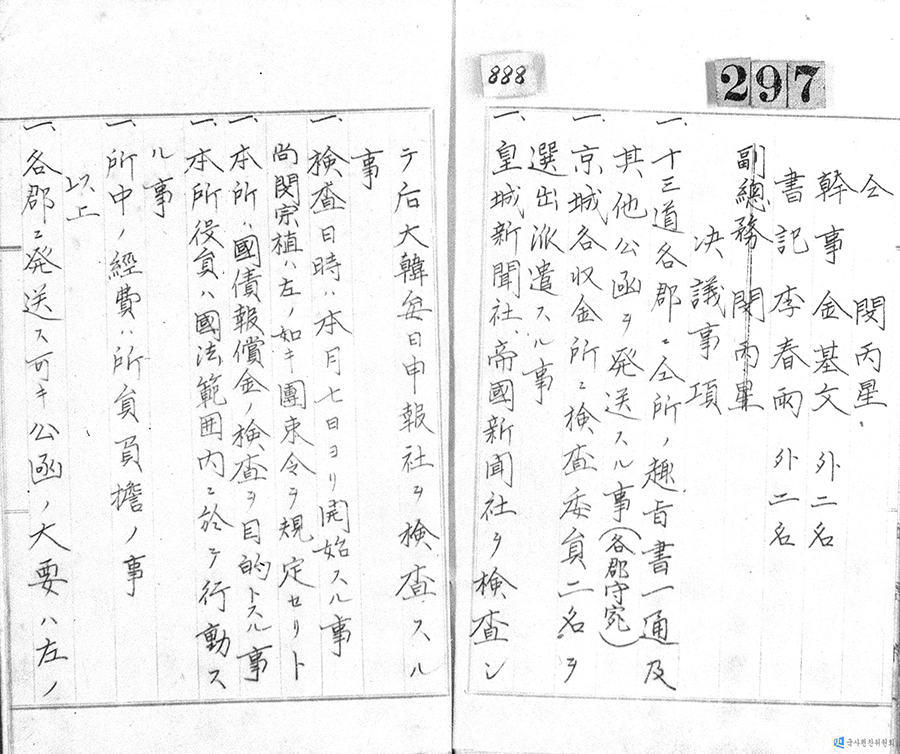 888
297
仝 閔丙星、
幹事 金基文 外二名
書記 李春雨 外二名
副總務 閔丙星
決議事項
一、十三道各郡ニ仝所ノ趣旨書一通及
其他公函ヲ発送スル事(各郡守宛)
一、京城各收金所ニ検査委員二名ヲ
選出派遣スル事
一、皇城新聞社、帝國新聞社ヲ検査シ
テ后大韓每日申報社ヲ検査スル
事
一、検査日時ハ本月七日ヨリ開始スル事
尚閔宗植ハ左ノ如キ團束令ヲ規定セリト
一、本所ハ國債報償金ノ検査ヲ目的トスル事
一、本所役員ハ國法範囲内ニ於テ行動ス
ル事
一、所中ノ經費ハ所員負擔ノ事
以上
一、各郡ニ発送ス可キ公函ノ大要ハ左ノ
국사편찬위원회